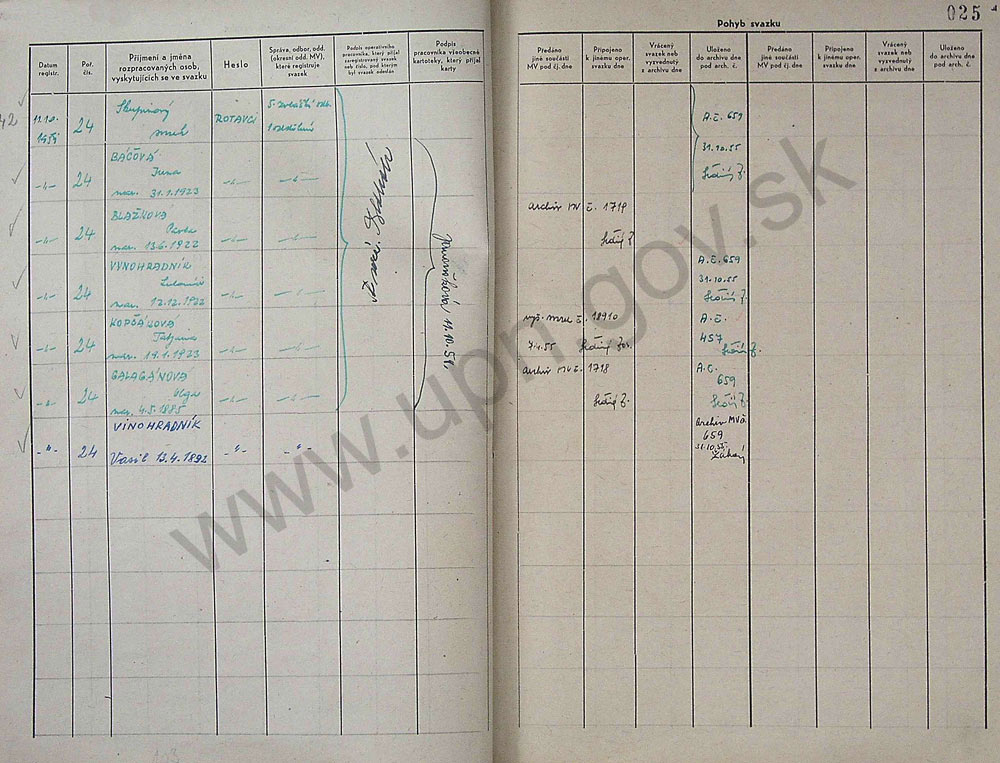 025
Pohyb svazku
Datum registr.
Poř. čís.
Příjmení a jména rozpracovaných osob, vyskytujících se ve svazku
Heslo
Správa, odbor, odd. (okresní odd. MV), které registruje svazek
Podpis operativního pracovníka, který přijal zaregistrovaný svazek neb číslo, pod kterým byl svazek odeslán
Podpis pracovníka všeobecné kartotéky, který přijal karty
Předáno jiné součásti MV pod čj. dne
Připojeno k jinému oper. svazku dne
Vrácený svazek neb vyzvednutý z archivu dne
Uloženo do archivu dne pod arch. č.
Předáno jiné součásti MV pod čj. dne
Připojeno k jinému oper. svazku dne
Vrácený svazek neb vyzvednutý z archivu dne
Uloženo do archivu dne pod arch. č.
42
11.10.
24
Skupinový
svazek
ROTAVCI
A.č. 659
31.10.55
-"- 24
BÁČOVÁ
Irena
nar. 31.1.1923
-"- -"-
-"- 24
BLAŽKOVÁ
nar. 13.6.1922
-"- -"-
archiv MV č. 1719
-"- 24
VYNOHRADNÍK
nar. 12.12.1922
-"- -"-
A.č. 659
31.10.55
-"- 24
KOPČÁKOVÁ
Tatjana
nar. 19.1.1923
-"- -"-
č. 18910
7.4.55
A.č.
457
-"- 24
GALAGÁNOVÁ
Olga
nar. 4.5.1885
-"- -"-
archiv MV č. 1718
A.č.
659
-"- 24
VINOHRADNÍK
Vasil 13.4.1892
-"- -"-
archiv MV
659
31.10.55
11.10.54
www.upn.gov.sk